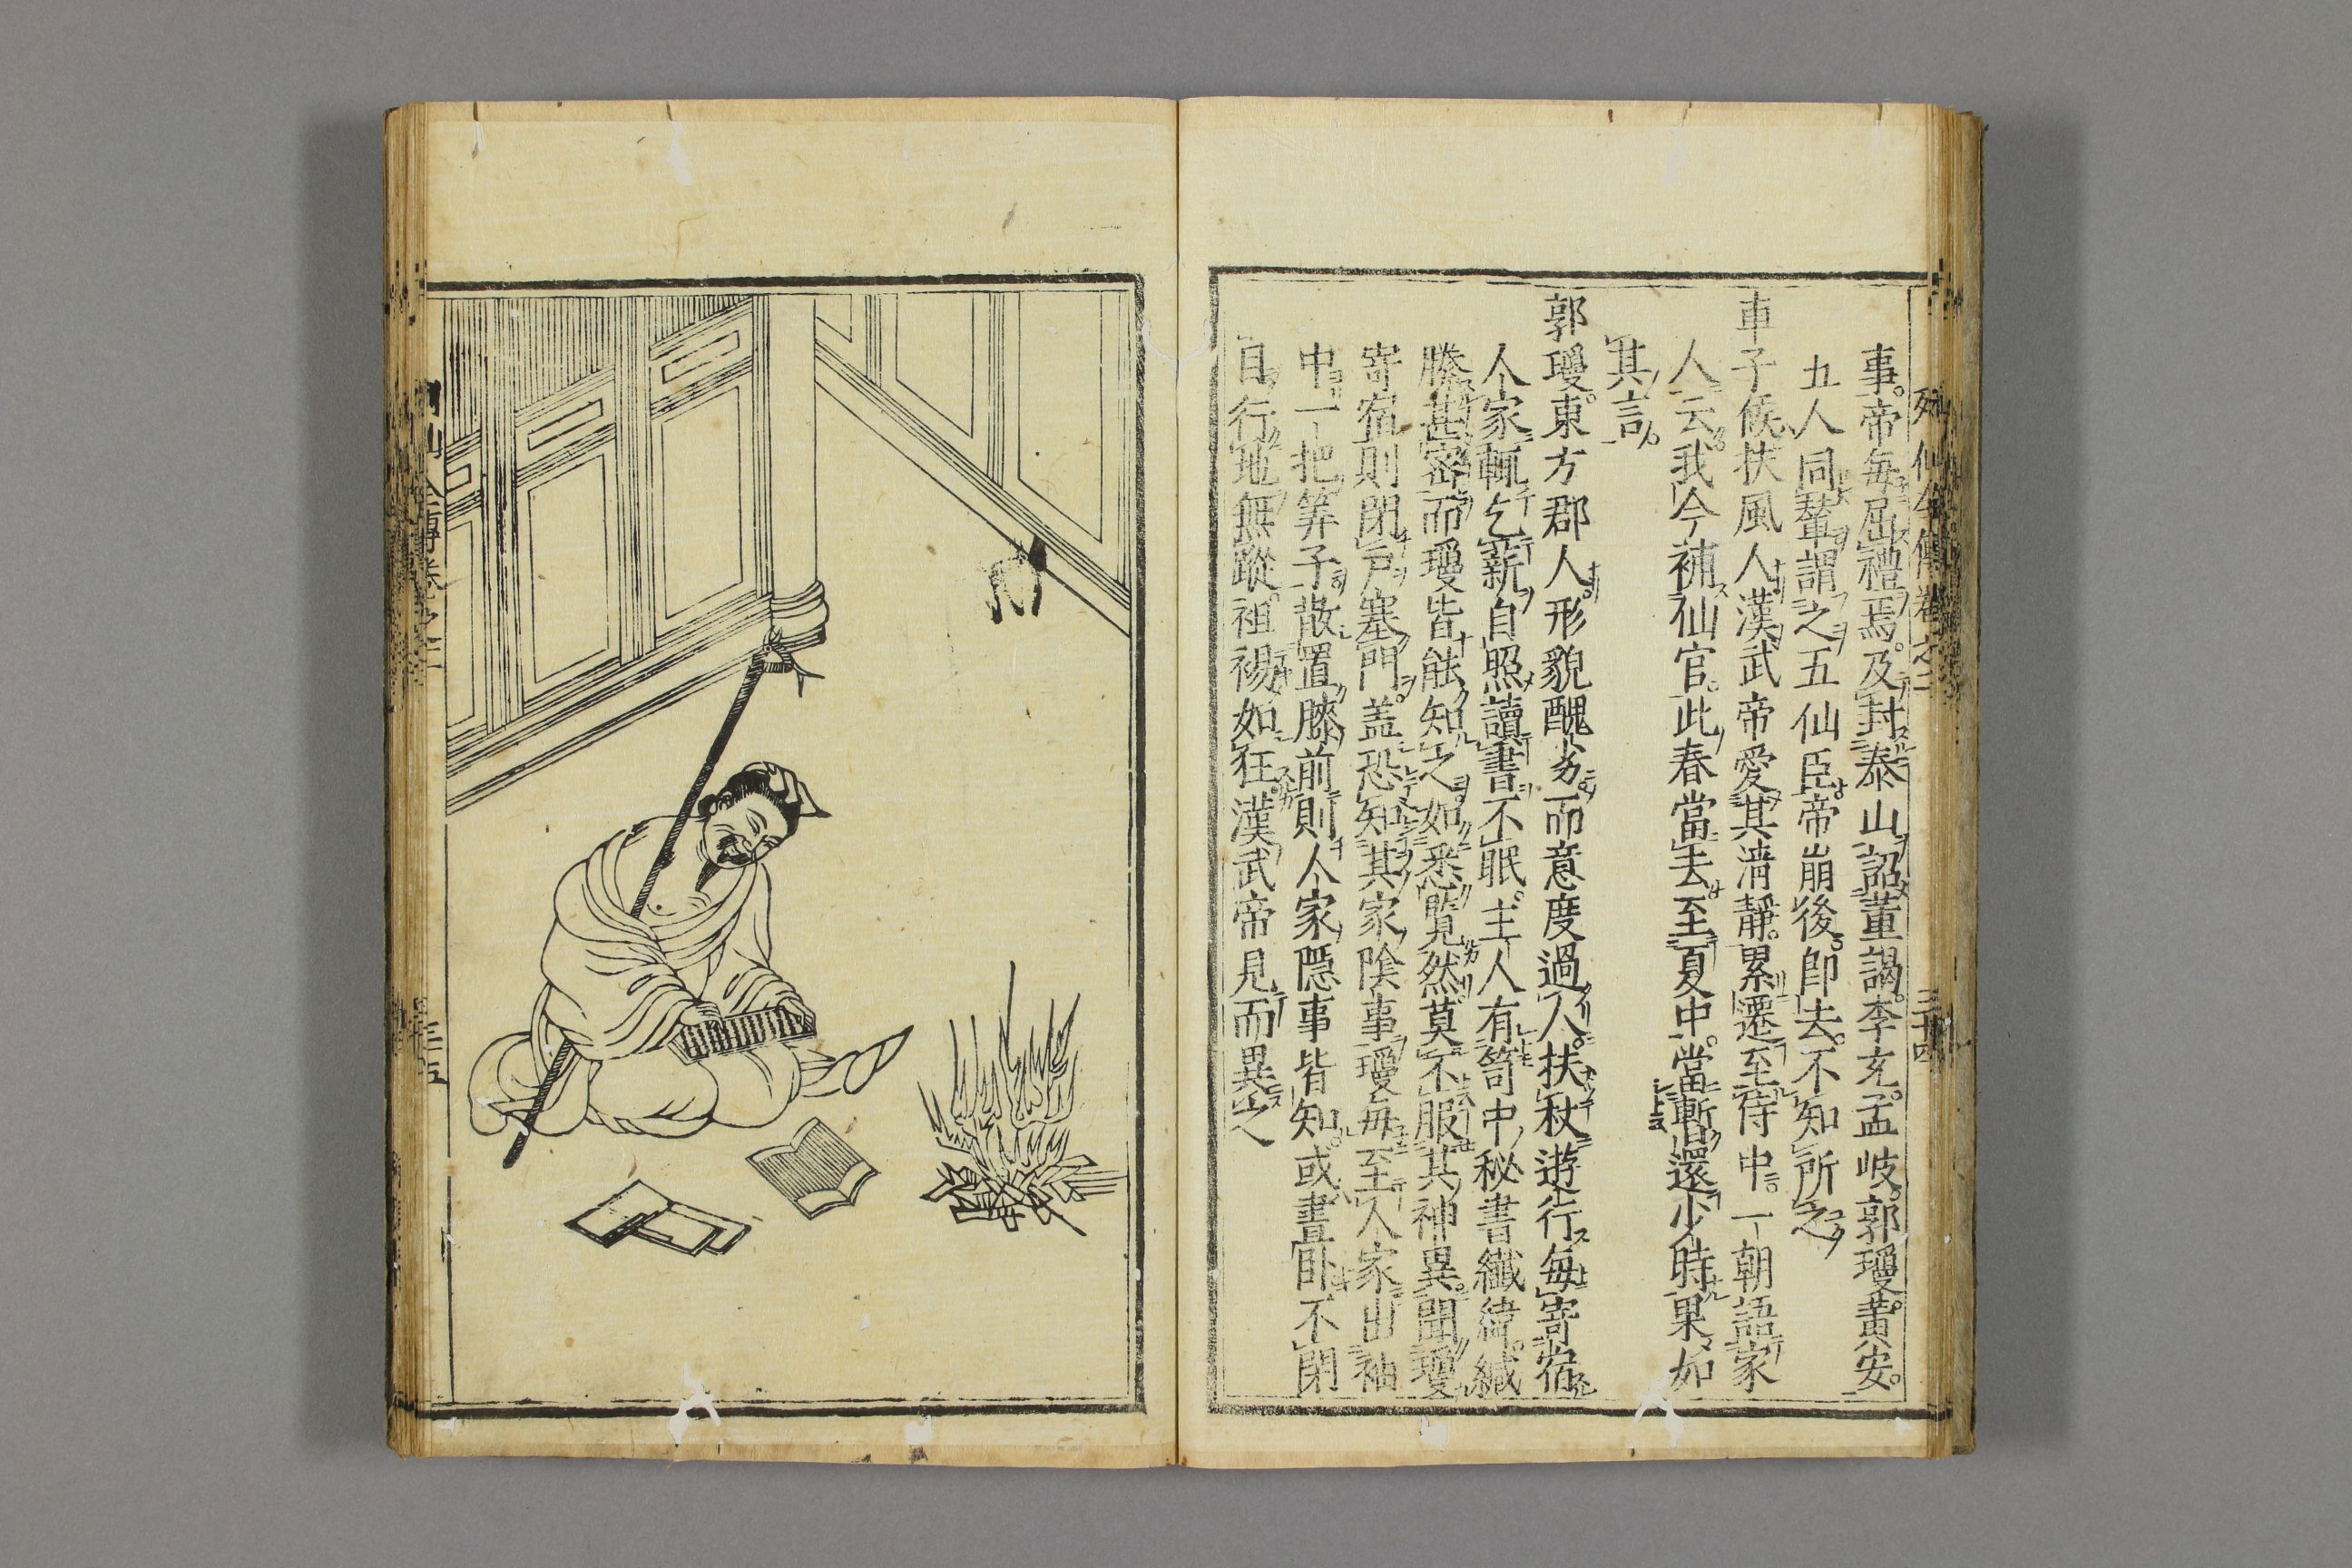 列仙全傳卷之二
三十四
事。帝每屈禮焉。及封泰山。詔董謁。李充。孟岐。郭瓊。黃安。
五人同輦。謂之五仙臣。帝崩後。卽去。不知所之
車子候。扶風人。漢武帝愛其清靜。累遷至侍中。一朝語家
人云。我今補仙官。此春當去。至夏中。當暫還。少時果如
其言。
郭瓊。東方郡人。形貌醜劣。而意度過人。扶杖遊行。每寄宿
人家。輒乞薪自照讀書不眠。主人有笥中秘書纖緯。緘
縢甚密。而瓊皆能知之。如悉覽然。莫不服其神異。聞瓊
寄宿。則閉戶塞門。盖恐知其家陰事。瓊每至人家。出袖
中一把筭子。散置膝前。則人家隱事皆知。或晝臥不閉
目。行地無蹤。袒裼如狂。漢武帝見而異之
列仙全傳卷之二
三十五